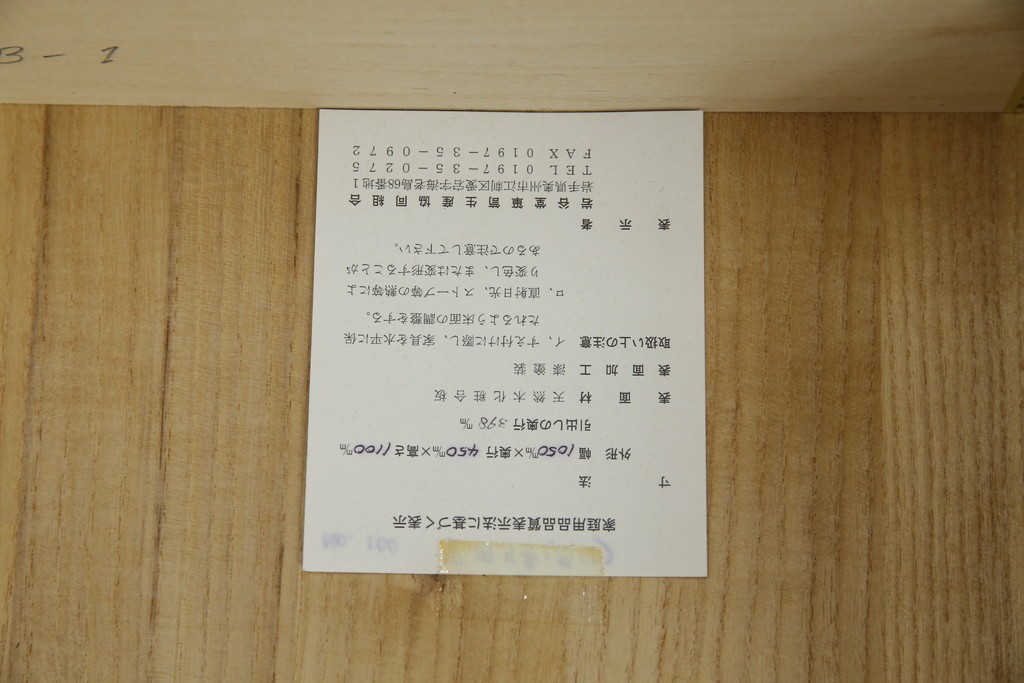 B-1
家庭用品品質表示法に基づく表示
寸法
外形 幅 1050m/m×奥行 450m/m×高さ1100m/m
引出しの奥行 398 m/m
表面材 天然木化粧合板
表面加工 漆塗装
取扱い上の注意 イ、すえ付けに際し、家具を水平に保
たれるよう床面の調整をする。
ロ、直射日光、ストーブ等の熱等によ
り変色し、または変形することが
あるので注意して下さい。
表示者
岩谷堂箪笥生産協同組合
岩手県奥州市江刺区愛宕字海老島68番地1
TEL 0197-35-0275
FAX 0197-35-0972